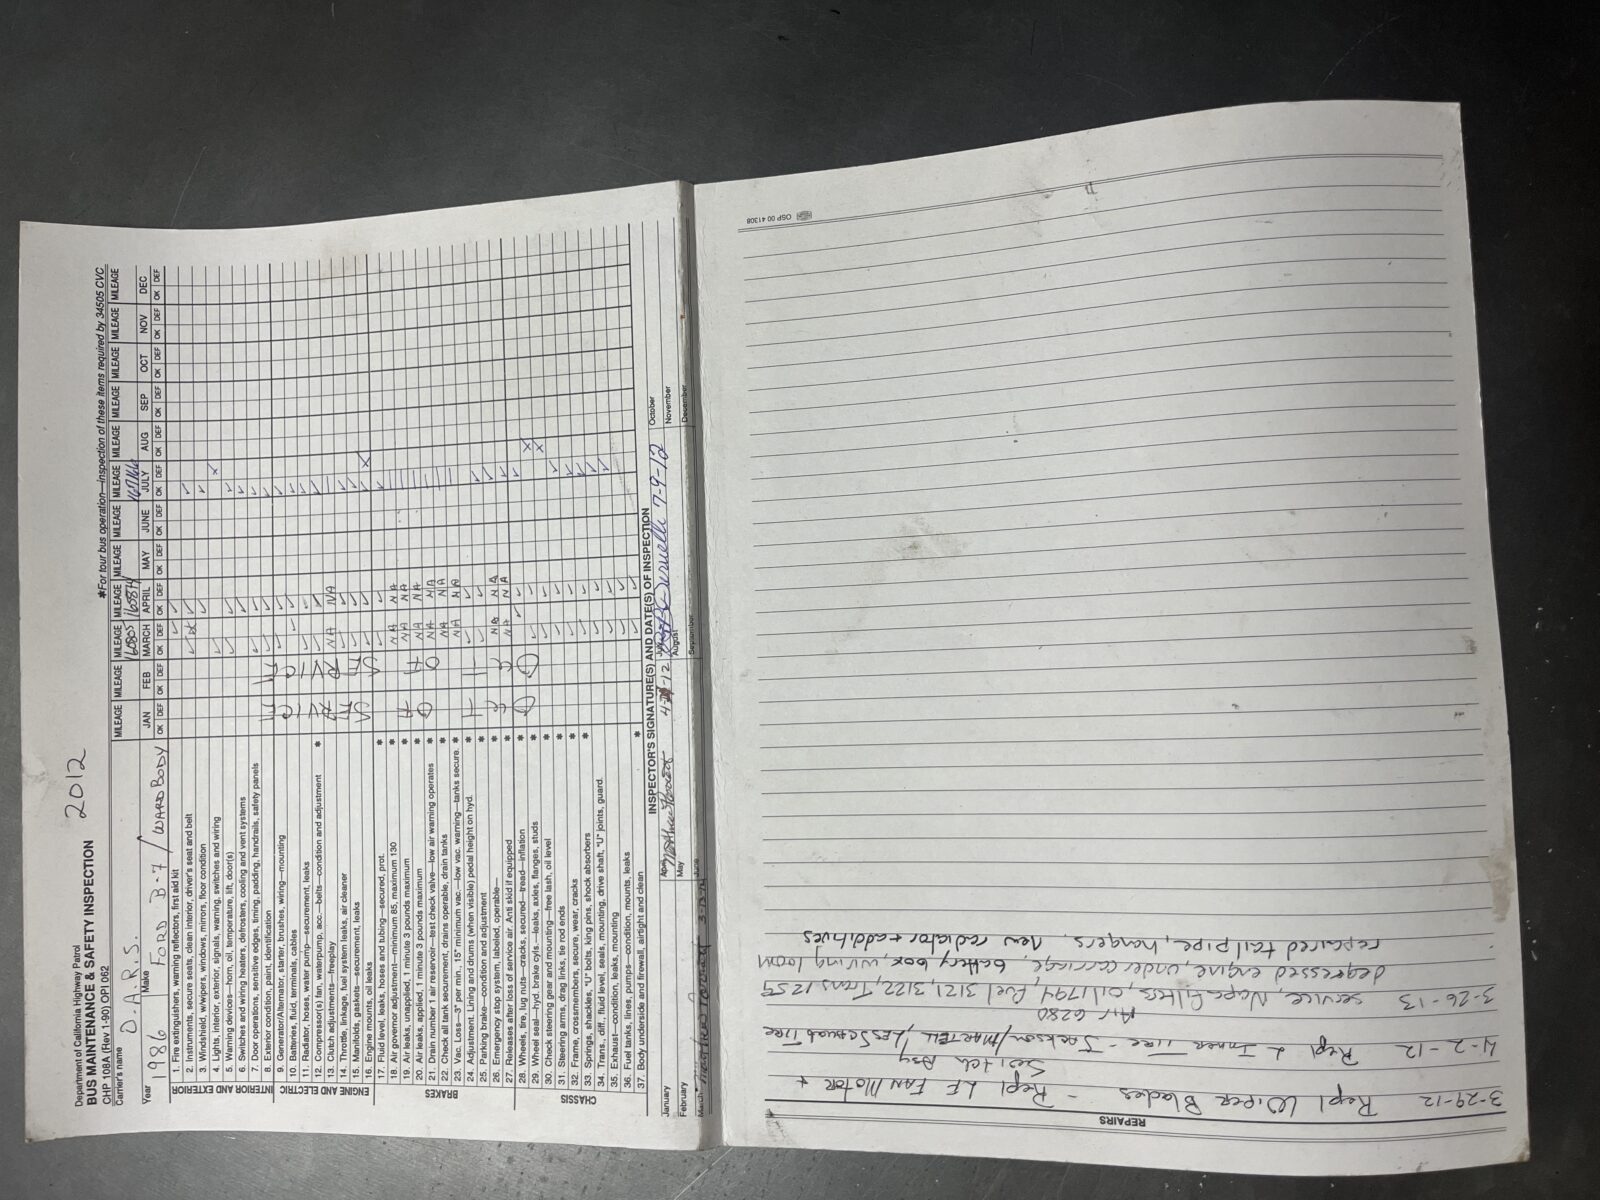 Department of California Highway Patrol
BUS MAINTENANCE & SAFETY INSPECTION 2012
CHP 108A (Rev 1-90) OPI 062
*For tour bus operation—inspection of these items required by 34505 CVC
Carrier's name O.A.R.S.
Year 1986 Make FORD B-7 / WARD BODY
MILEAGE MILEAGE MILEAGE MILEAGE MILEAGE MILEAGE MILEAGE MILEAGE MILEAGE MILEAGE MILEAGE MILEAGE
JAN FEB MARCH APRIL MAY JUNE JULY AUG SEP OCT NOV DEC
OK DEF OK DEF OK DEF OK DEF OK DEF OK DEF OK DEF OK DEF OK DEF OK DEF OK DEF OK DEF
OUT OF SERVICE
OUT OF SERVICE
INTERIOR AND EXTERIOR
1. Fire extinguishers, warning reflectors, first aid kit
2. Instruments, secure seats, clean interior, driver's seat and belt
3. Windshield, w/wipers, windows, mirrors, floor condition
4. Lights, interior, exterior, signals, warning, switches and wiring
5. Warning devices—horn, oil, temperature, lift, door(s)
6. Switches and wiring heaters, defrosters, cooling and vent systems
7. Door operations, sensitive edges, timing, padding, handrails, safety panels
8. Exterior condition, paint, identification
ENGINE AND ELECTRIC
9. Generator/Alternator, starter, brushes, wiring—mounting
10. Batteries, fluid, terminals, cables
11. Radiator, hoses, water pump—securement, leaks
12. Compressor(s) fan, waterpump, acc.—belts—condition and adjustment *
13. Clutch adjustments—freeplay NA NA
14. Throttle, linkage, fuel system leaks, air cleaner
15. Manifolds, gaskets—securement, leaks
16. Engine mounts, oil leaks
BRAKES
17. Fluid level, leaks, hoses and tubing—secured, prot. *
18. Air governor adjustment—minimum 85, maximum 130 * NA NA
19. Air leaks, unapplied, 1 minute 3 pounds maximum * NA NA
20. Air leaks, applied, 1 minute 3 pounds maximum * NA NA
21. Drain number 1 air reservoir—test check valve—low air warning operates * NA NA
22. Check all tank securement, drains operable, drain tanks * NA NA
23. Vac. Loss—3" per min., 15" minimum vac.—low vac. warning—tanks secure. * NA NA
24. Adjustment. Lining and drums (when visible) pedal height on hyd. *
25. Parking brake—condition and adjustment *
26. Emergency stop system, labeled, operable— * NA NA
27. Releases after loss of service air. Anti skid if equipped * NA NA
CHASSIS
28. Wheels, tire, lug nuts—cracks, secured—tread—inflation *
29. Wheel seal—hyd. brake cyls.—leaks, axles, flanges, studs *
30. Check steering gear and mounting—free lash, oil level *
31. Steering arms, drag links, tie rod ends *
32. Frame, crossmembers, secure, wear, cracks *
33. Springs, shackles, "U" bolts, king pins, shock absorbers *
34. Trans., diff., fluid level, seals, mounting, drive shaft, "U" joints, guard.
35. Exhaust—condition, leaks, mounting
36. Fuel tanks, lines, pumps—condition, mounts, leaks
37. Body underside and firewall, airtight and clean *
INSPECTOR'S SIGNATURE(S) AND DATE(S) OF INSPECTION
January April July 7-9-12 October
February May August November
March June September December
OSP 00 41308
REPAIRS
3-29-12 Repl Wiper Blades - Repl LF Fan Motor +
Switch Assy
4-2-12 Repl 2 Inner Tire - Jackson/Martell/Les Schwab Tire
Air 6280
3-26-13 Service, Napa Filters, Oil 1794, Fuel 3121, 3122, Trans 1259
degreased engine, under carriage, battery box, wiring loom
repaired tail pipe, hangers, New radiator + additives